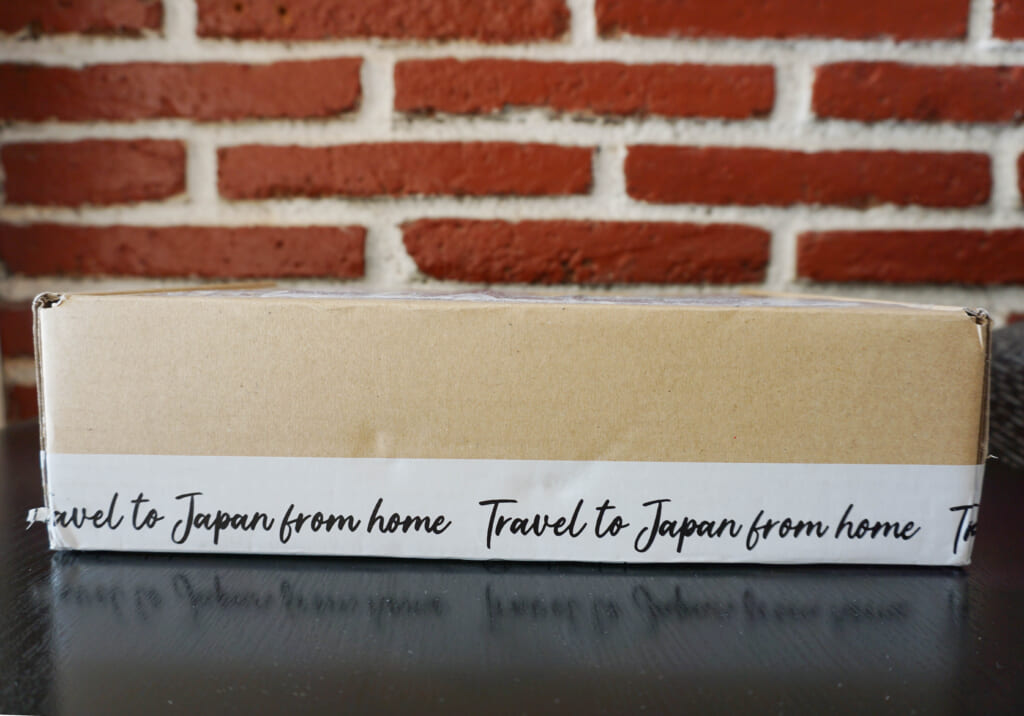 avel to Japan from home Travel to Japan from home Tr